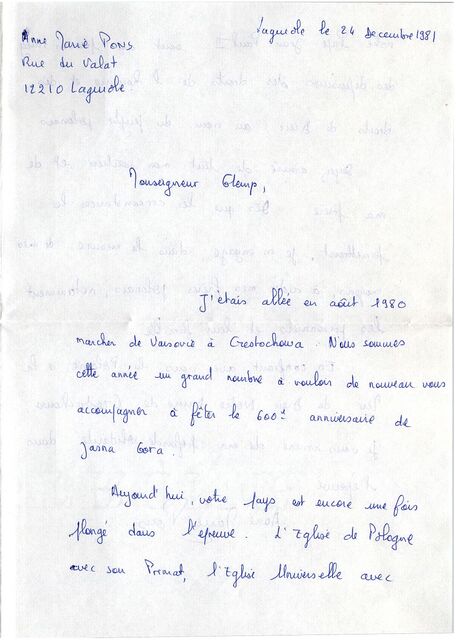 Laguiole le 24 Decembre 1981
Anne Marie Pons
Rue du Valat
12210 Laguiole
Monseigneur Glemp,
J'etais allée en août 1980
marcher de Varsovie à Czestochowa. Nous sommes
cette année un grand nombre à vouloir de nouveau vous
accompagner à fêter le 600e anniversaire de
Jasna Gora.
Aujourd'hui, votre pays est encore une fois
plongé dans l'epreuve. L'Eglise de Pologne
avec son Primat, l'Eglise Universelle avec